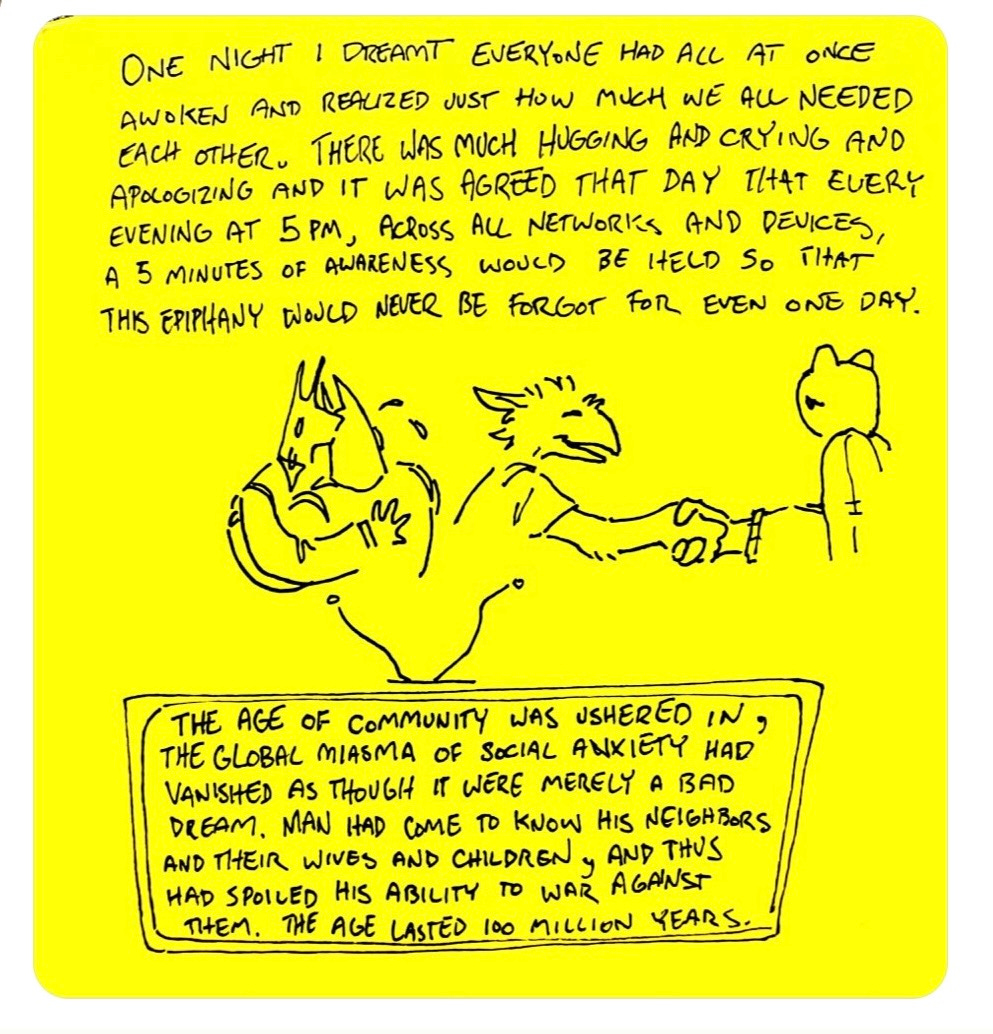 ONE NIGHT I DREAMT EVERYONE HAD ALL AT ONCE
AWOKEN AND REALIZED JUST HOW MUCH WE ALL NEEDED
EACH OTHER. THERE WAS MUCH HUGGING AND CRYING AND
APOLOGIZING AND IT WAS AGREED THAT DAY THAT EVERY
EVENING AT 5 PM, ACROSS ALL NETWORKS AND DEVICES,
A 5 MINUTES OF AWARENESS WOULD BE HELD SO THAT
THIS EPIPHANY WOULD NEVER BE FORGOT FOR EVEN ONE DAY.
THE AGE OF COMMUNITY WAS USHERED IN,
THE GLOBAL MIASMA OF SOCIAL ANXIETY HAD
VANISHED AS THOUGH IT WERE MERELY A BAD
DREAM. MAN HAD COME TO KNOW HIS NEIGHBORS
AND THEIR WIVES AND CHILDREN, AND THUS
HAD SPOILED HIS ABILITY TO WAR AGAINST
THEM. THE AGE LASTED 100 MILLION YEARS.